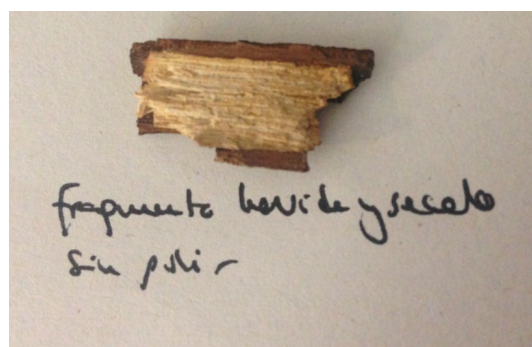 fragmento hervido y secado
sin pulir